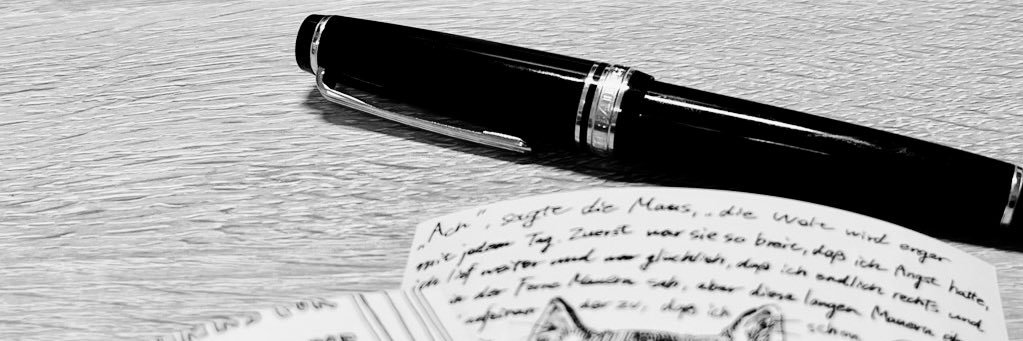 „Ach“, sagte die Maus, „die Welt wird enger
mit jedem Tag. Zuerst war sie so breit, daß ich Angst hatte,
ich lief weiter und war glücklich, daß ich endlich rechts und
in der Ferne Mauern sah, aber diese langen Mauern
aufeinander zu, daß ich schon